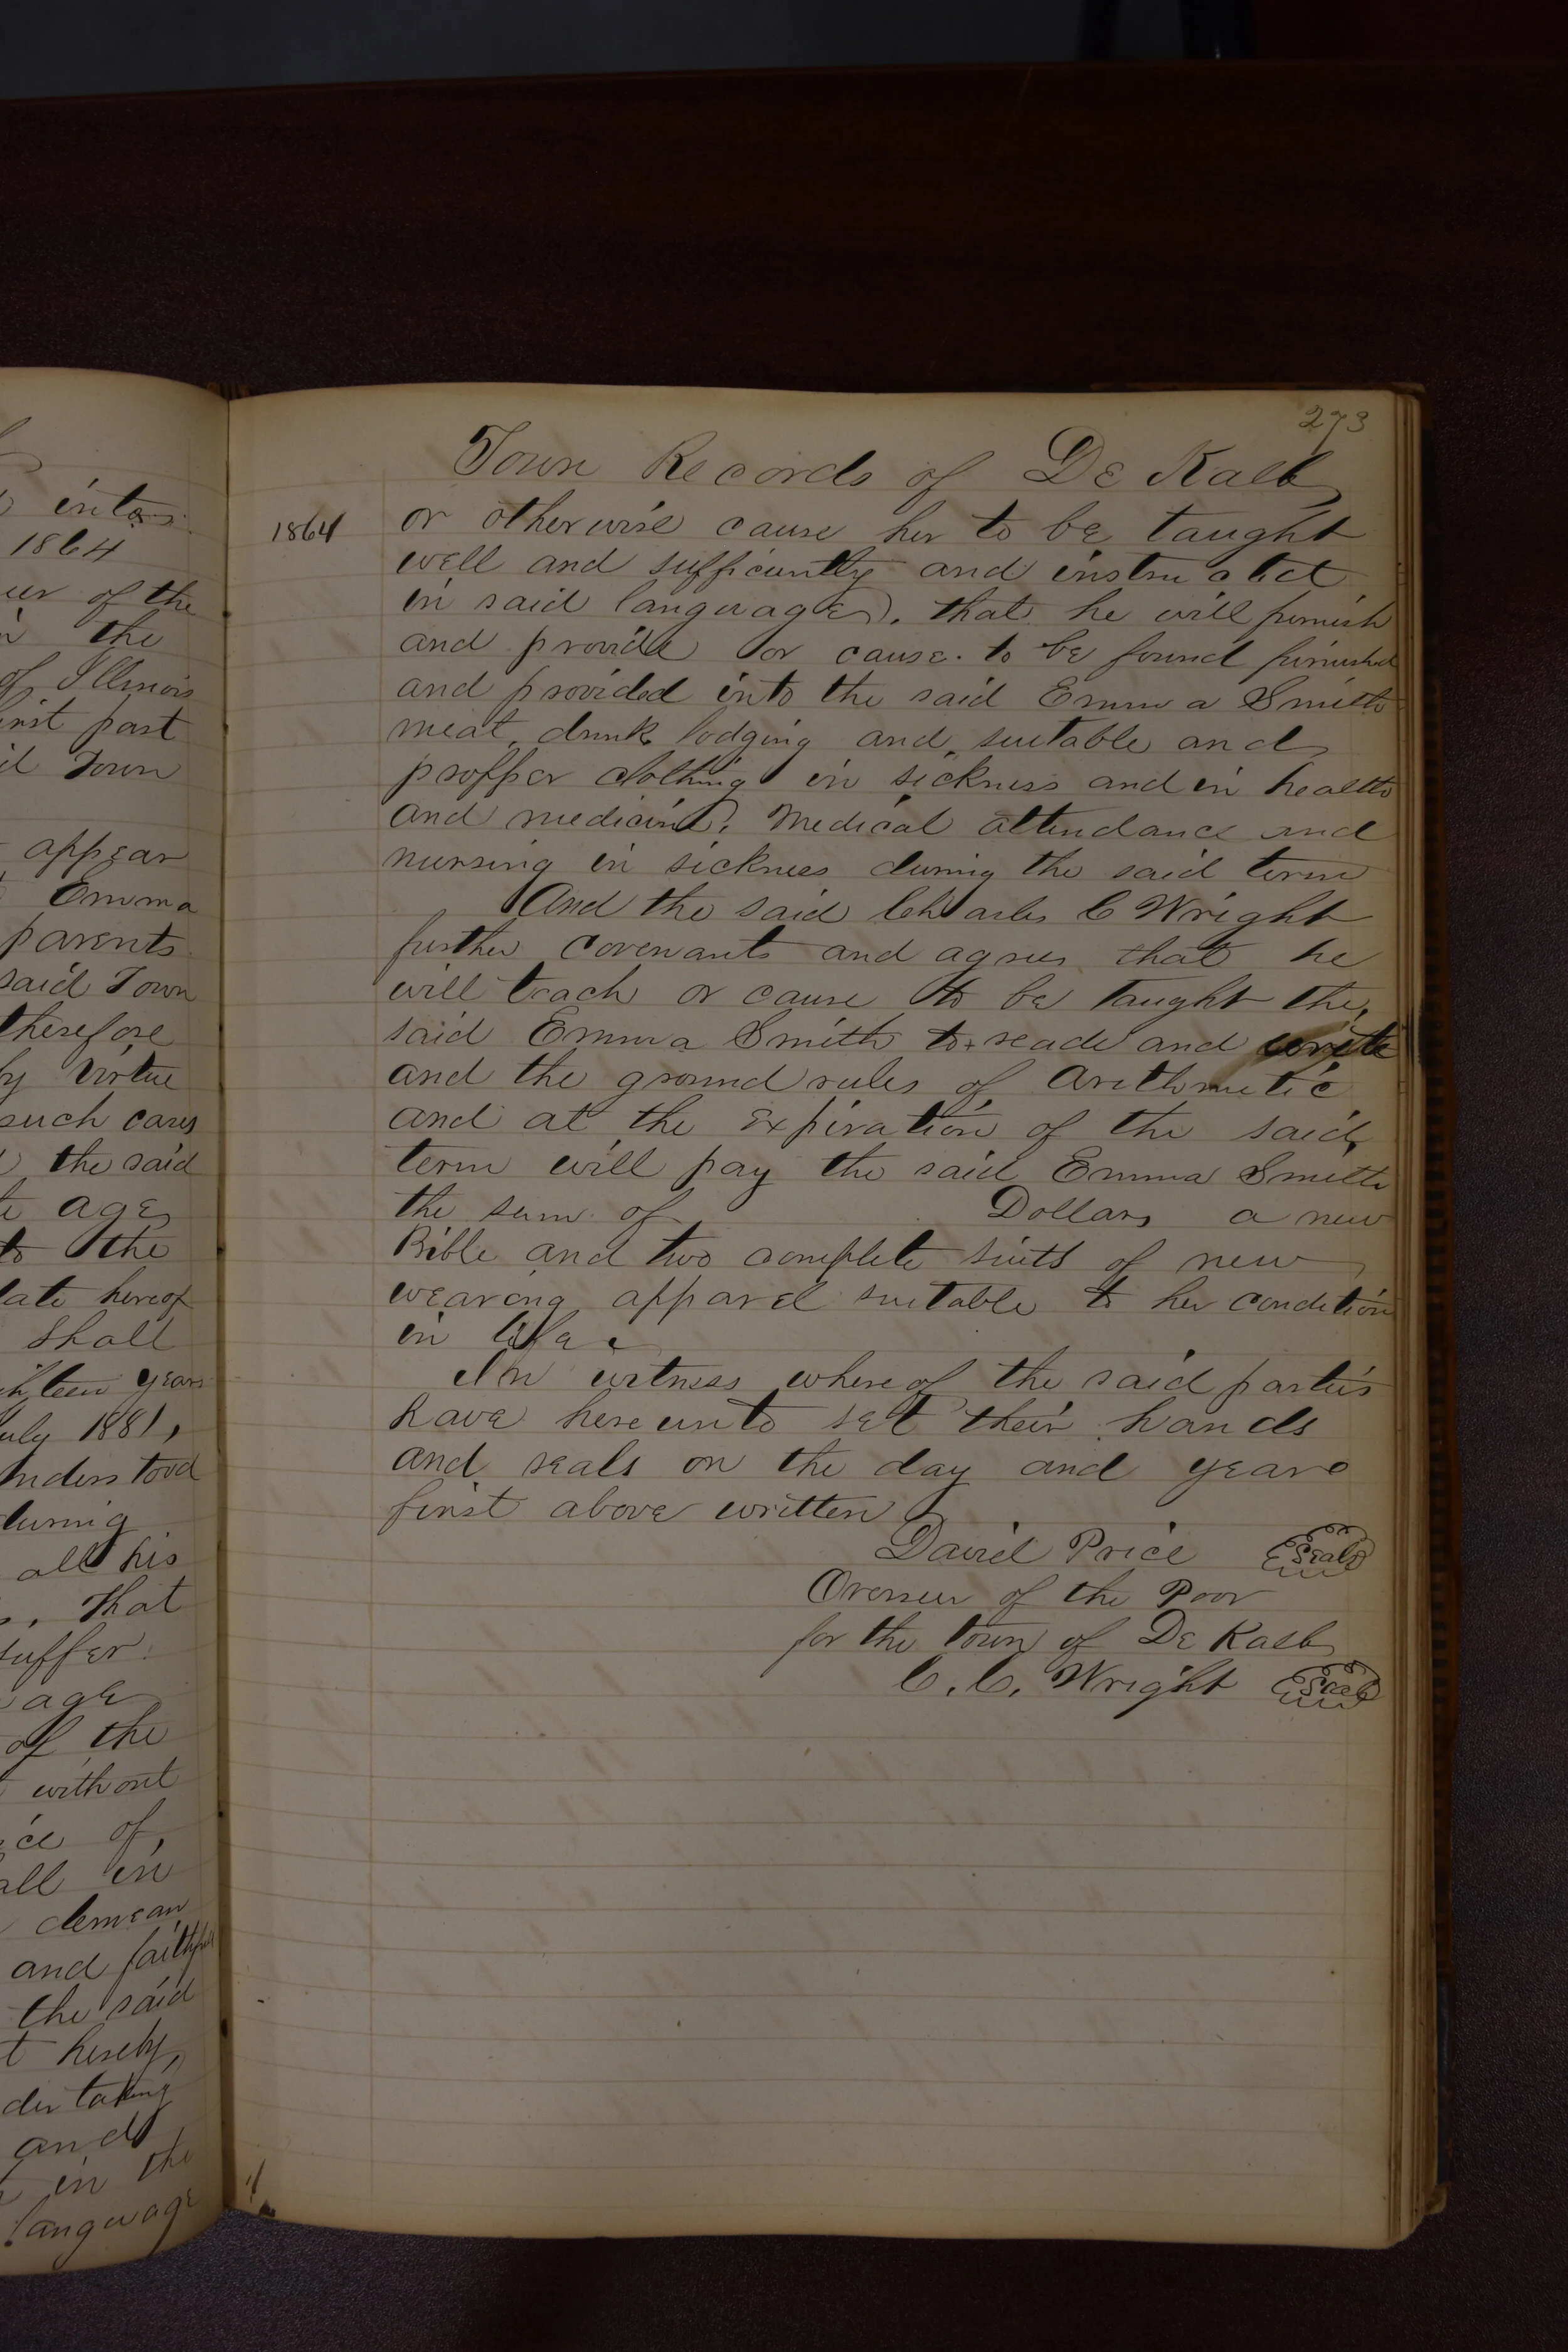 into
1864
of the
the
of Illinois
first part
Town
appear
Emma
parents
said Town
therefore
by virtue
such cases
the said
age
to the
date hereof
shall
years
July 1881,
understood
during
all his
. That
suffer
age
of the
without
of,
all in
demean
and faithful
the said
hereby,
and
in the
languvage
273
Town Records of De Kalb
1864 or otherwise cause her to be taught
well and sufficiently and instructed
in said languvage, that he will furnish
and provide or cause to be found furnished
and provided into the said Emma Smith
meat, drink lodging and suitable and
propper clothing in sickness and in health
and medicine, Medical attendance and
nursing in sickness during the said term
And the said Charles C Wright
further covenants and agrees that he
will teach or cause to be taught the
said Emma Smith to reade and write
and the ground rules of Arithmetic
and at the expiration of the said
term will pay the said Emma Smith
the sum of Dollars a new
Bible and two complete suits of new
wearing apparel suitable to her condition
in life
In witness whereof the said parties
have hereunto set their hands
and seals on the day and yeare
first above written
David Price Seal
Overseer of the Poor
for the town of De Kalb
C. C. Wright Seal